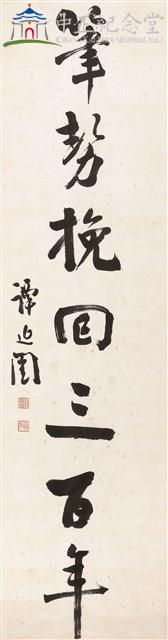 中正紀念堂
CHIANG KAI-SHEK MEMORIAL HALL
筆勢挽回三百年
譚延闓